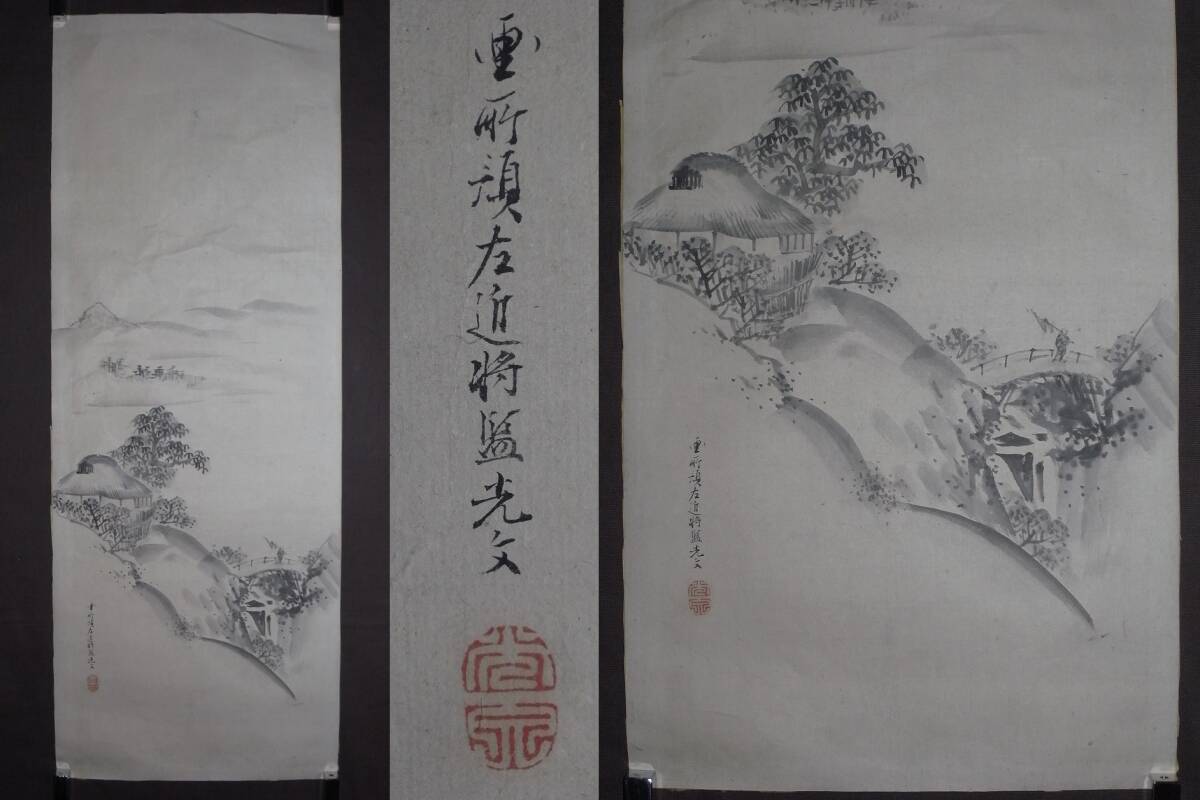 画所預左近将監光文
画所預左近将監光文
画所預左近将監光文